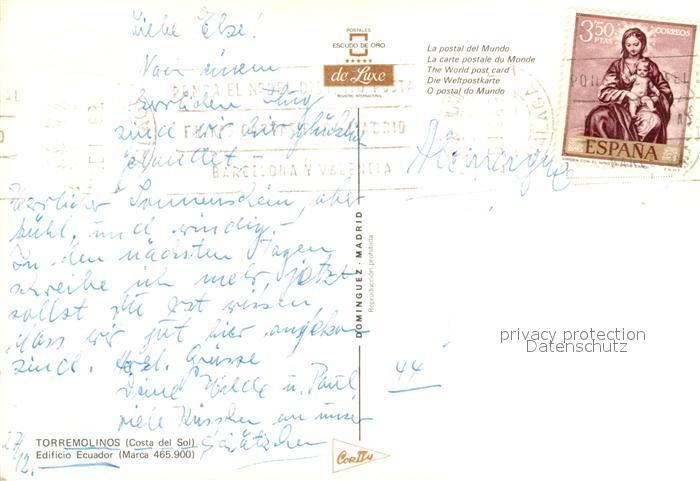 Liebe Else!
Nach einem
herrlichen Flug
sind wir hier glücklich
gelandet. -
Herrlicher Sonnenschein, aber
kühl, und windig. -
In den nächsten Tagen
schreibe ich mehr, jetzt
sollst Du erst wissen
dass wir gut hier angekommen
sind. Herzl. Grüsse
Deine Hilde u. Paul
viele Küsschen an unser
27/12.
TORREMOLINOS (Costa del Sol)
Edificio Ecuador (Marca 465.900)
POSTALES
ESCUDO DE ORO
de Luxe
REGISTRO INTERNACIONAL
La postal del Mundo
La carte postale du Monde
The World post card
Die Weltpostkarte
O postal do Mundo
PONGA EL N.
BARCELONA Y VALENCIA
DOMINGUEZ - MADRID
Reproducción prohibida
3'50 PTAS CORREOS
ESPAÑA
Alemania
44
privacy protection
Datenschutz